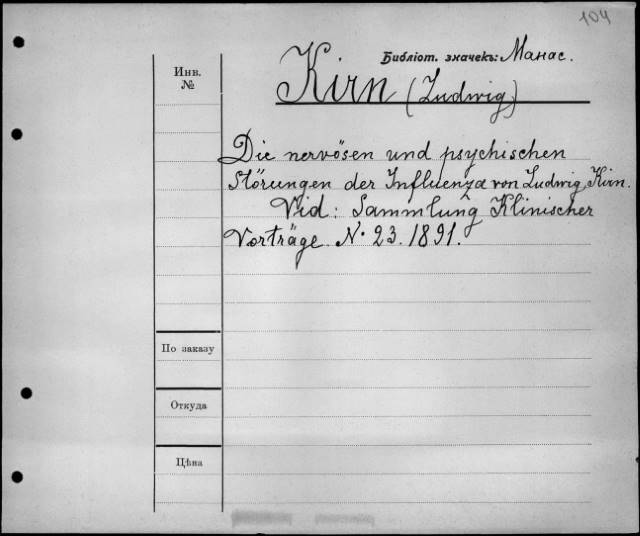 104
Библіот. значекъ: Манас.
Инв.
№
Kirn (Ludwig)
Die nervösen und psychischen
Störungen der Influenza von Ludwig Kirn.
Vid: Sammlung Klinischer
Vorträge. N. 23. 1891.
По заказу
Откуда
Цѣна